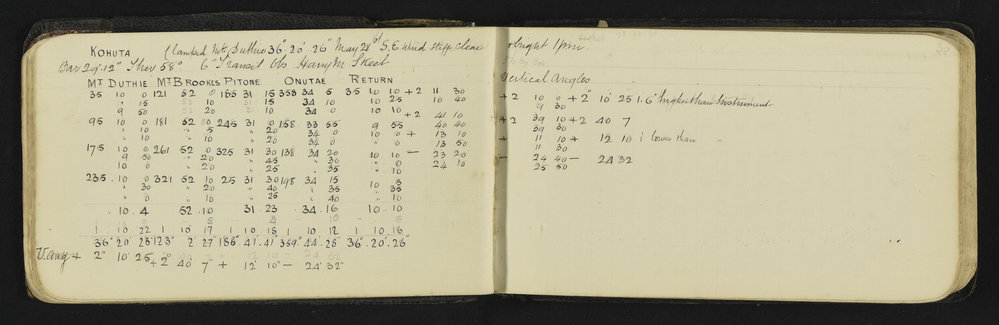 KOHUTA Clamped Mt Duthie 36° 20' 26" May 28th S.E. Wind stiff clear & bright 1 p.m.
Bar 29.12" Ther 58° 6" Transit Obs Harry M. Skeet
MT DUTHIE MT BROOKES PITONE ONUTAE RETURN Vertical Angles
35 10 0 121 52 0 185 31 15 358 34 5 35 10 10 +2 11 30 +2 10 0 +2° 10' 25 1.6" higher than Instrument
" 15 52 10 31 15 34 10 10 25 10 40 9 30
9 50 52 20 31 10 34 0 10 10
95 10 0 181 52 10 245 31 0 158 33 55 9 55 +2 41 10 40 40 +2 39 10 +2 40 7
" 10 " 5 " 20 34 0 10 0 + 13 10 39 30
" 10 " 10 " 20 34 0 13 50 + 11 10 + 12 10 1 lower than "
175 10 0 261 52 0 325 31 30 138 34 20 10 10 — 23 20 11 30
9 50 " 20 " 45 " 30 " 0 24 10 — 24 40 — 24 32
10 0 " 20 " 25 " 35 " 10 25 50
235 10 0 321 52 10 25 31 30 198 34 15 10 5
" 30 " 20 " 40 " 35 " 35
" 10 " 10 " 25 " 40 " 10
10 4 52 10 31 23 34 16 10 10
1 10 22 1 10 17 1 10 18 1 10 12 1 10 16
36° 20' 26" 123° 2' 27" 186° 41' 41" 359° 44' 28" 36° 20' 26"
V. ang + 2° 10' 25"
+2° 40' 7" + 12' 10" — 24' 32"